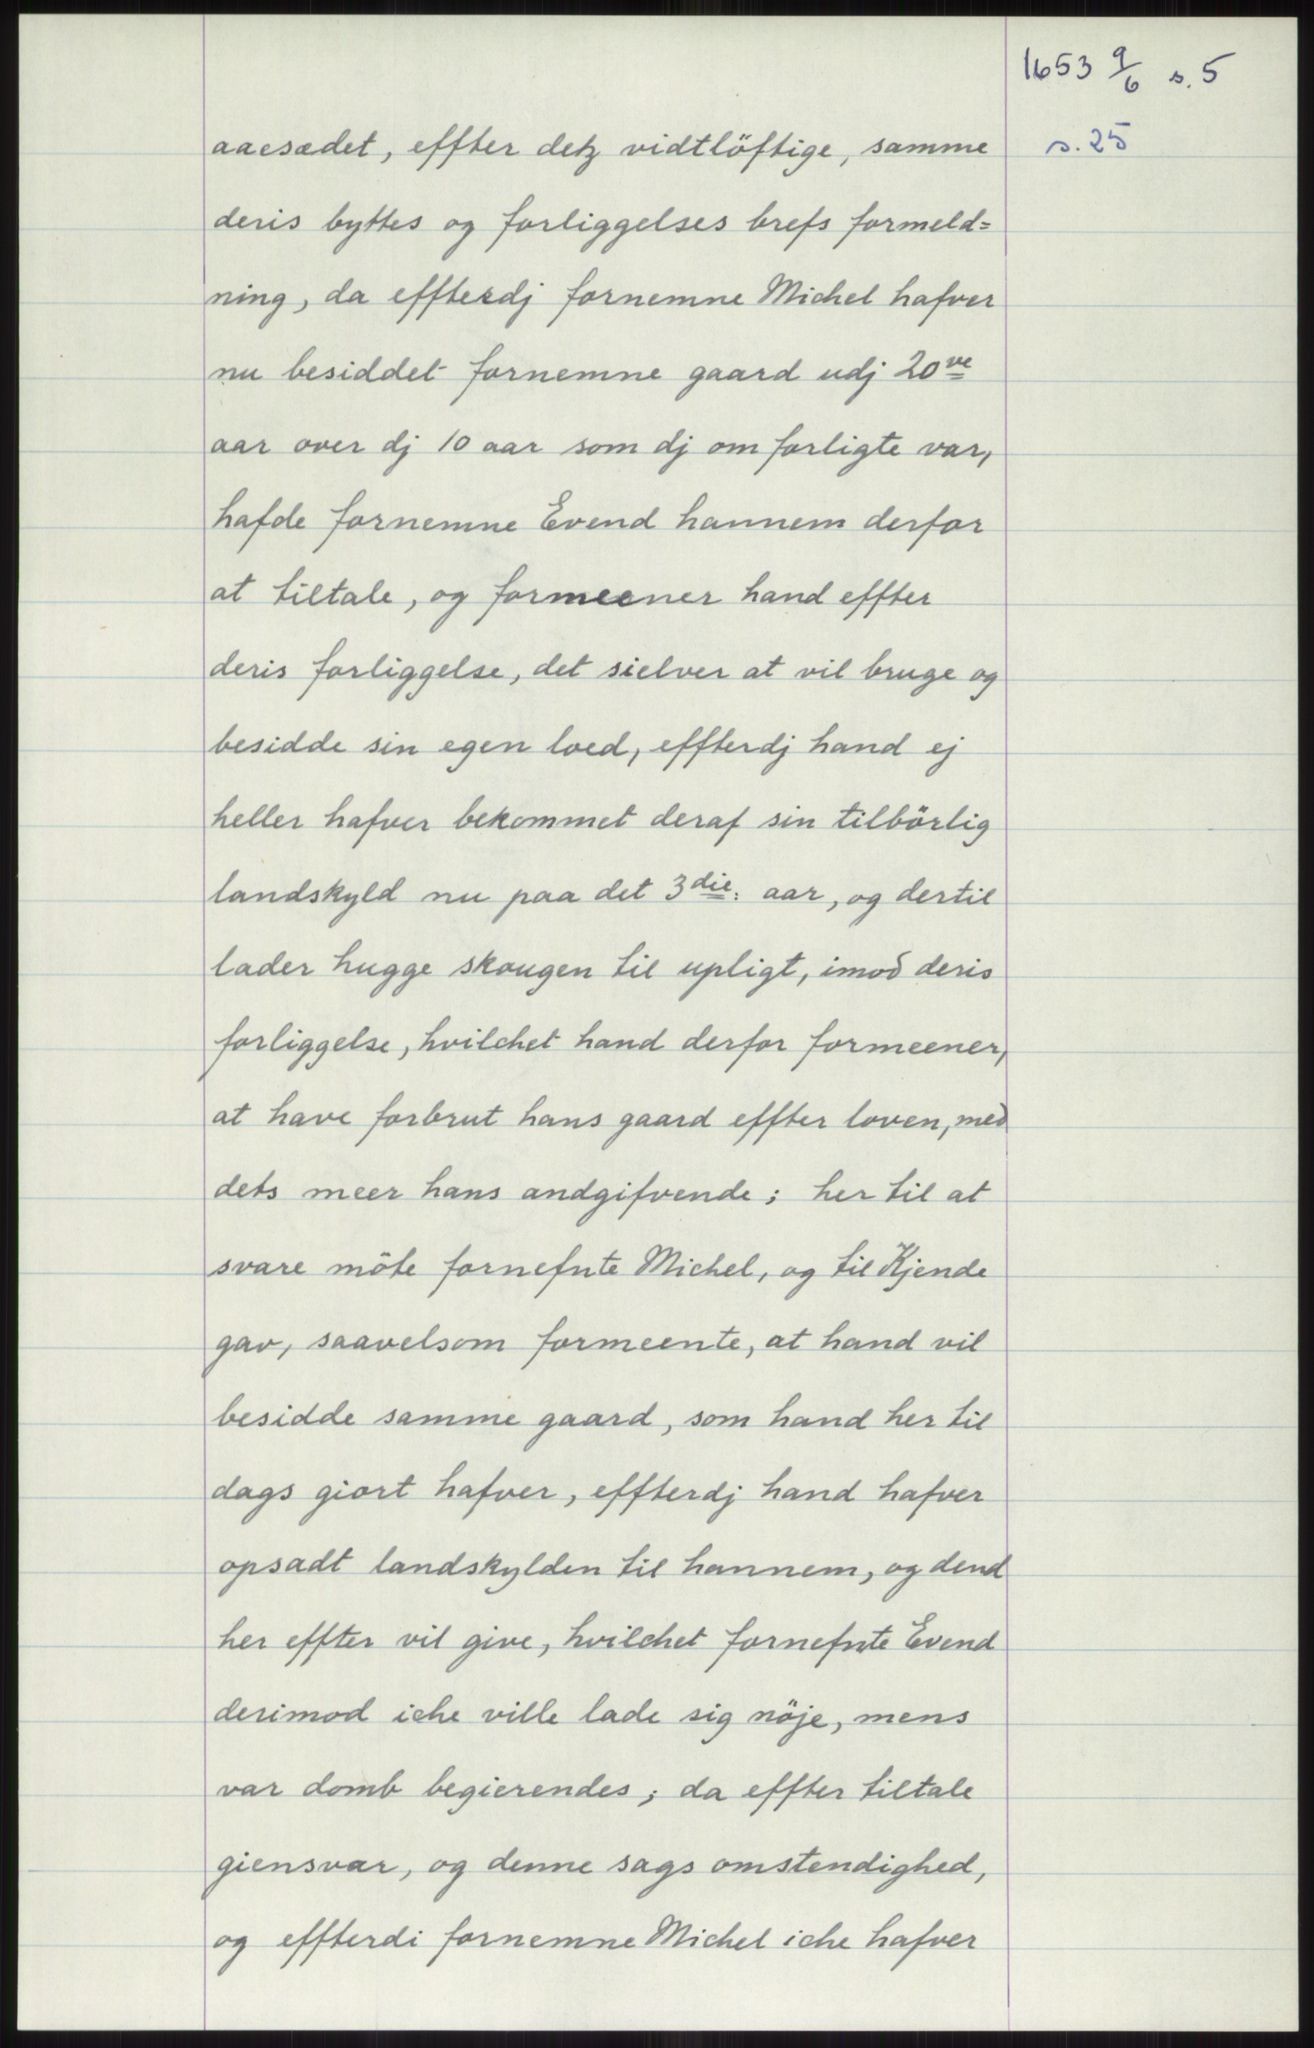 1653 9/6 s. 5
s. 25
aaesædet, effter detz vidtlöftige, samme
deris byttes og forliggelses brefs formeld=
ning, da effterdj fornemne Michel hafver
nu besiddet fornemne gaard udj 20ve
aar over dj 10 aar som dj om forligte var,
hafde fornemne Evend hannem derfor
at tiltale, og formeener hand effter
deris forliggelse, det sielver at vil bruge og
besidde sin egen loed, effterdj hand ej
heller hafver bekommet deraf sin tilbörlig
landskyld nu paa det 3die: aar, og dertil
lader hugge skougen til upligt, imod deris
forliggelse, hvilchet hand derfor formeener,
at have forbrut hans gaard effter loven, med
dets meer hans andgifvende; her til at
svare möte fornefnte Michel, og til Kjende
gav, saavelsom formeente, at hand vil
besidde samme gaard, som hand her til
dags giort hafver, effterdj hand hafver
opsadt landskylden til hannem, og dend
her effter vil give, hvilchet fornefnte Evend
derimod iche ville lade sig nöje, mens
var domb begierendes; da effter tiltale
giensvar, og denne sags omstendighed,
og effterdi fornemne Michel iche hafver